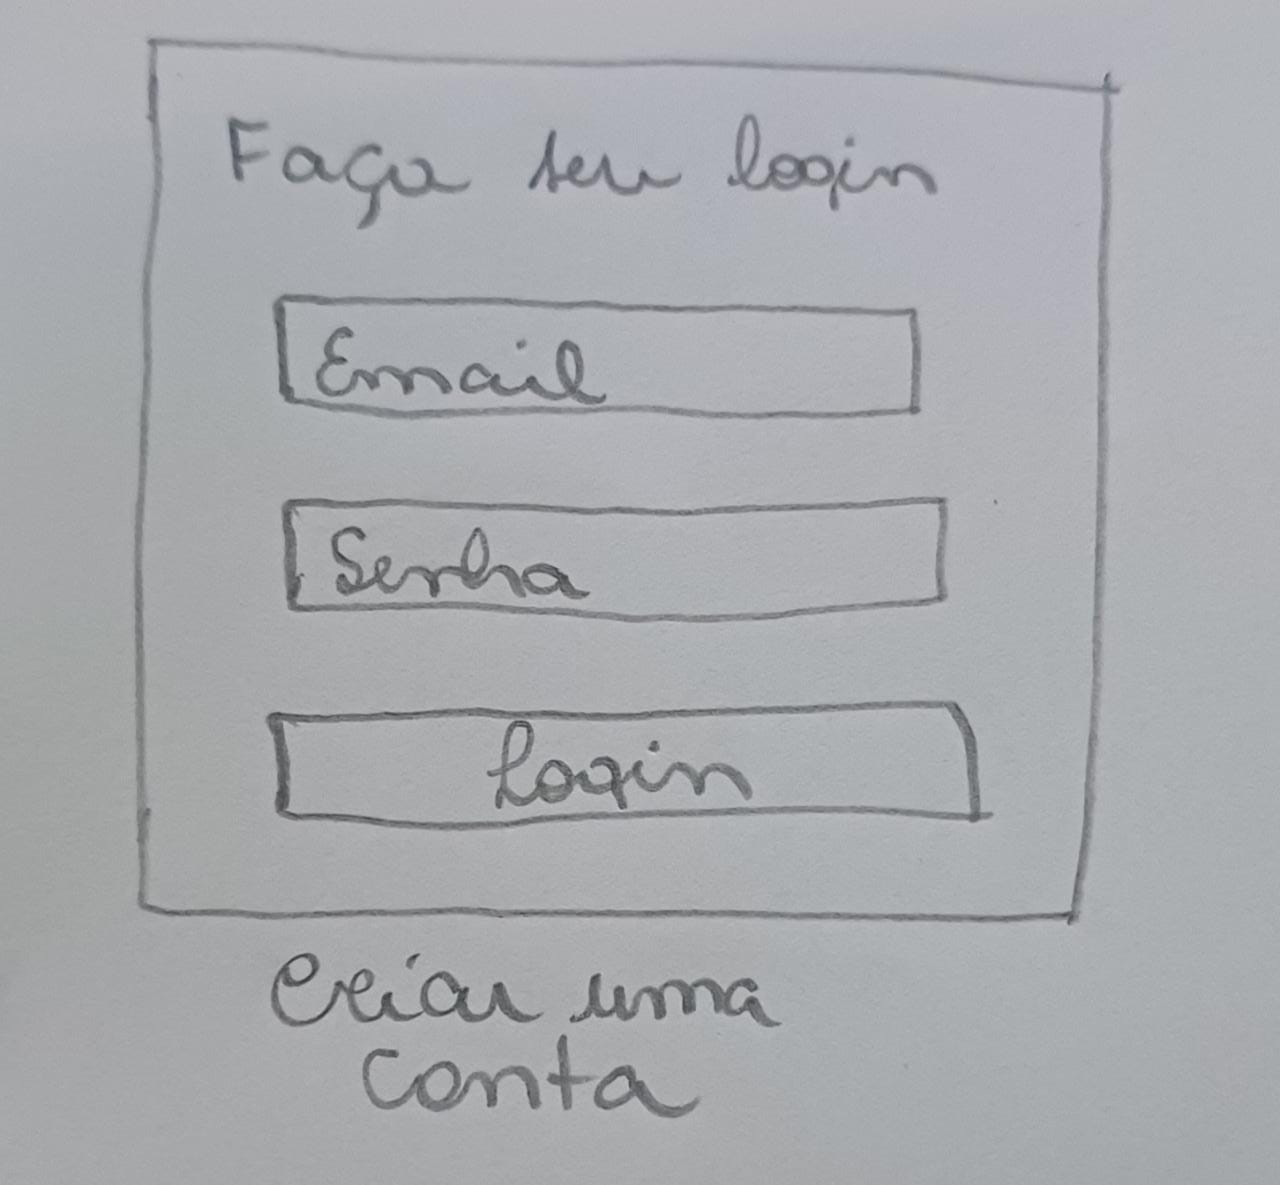 Faça seu login
Email
Senha
Login
Criar uma
conta